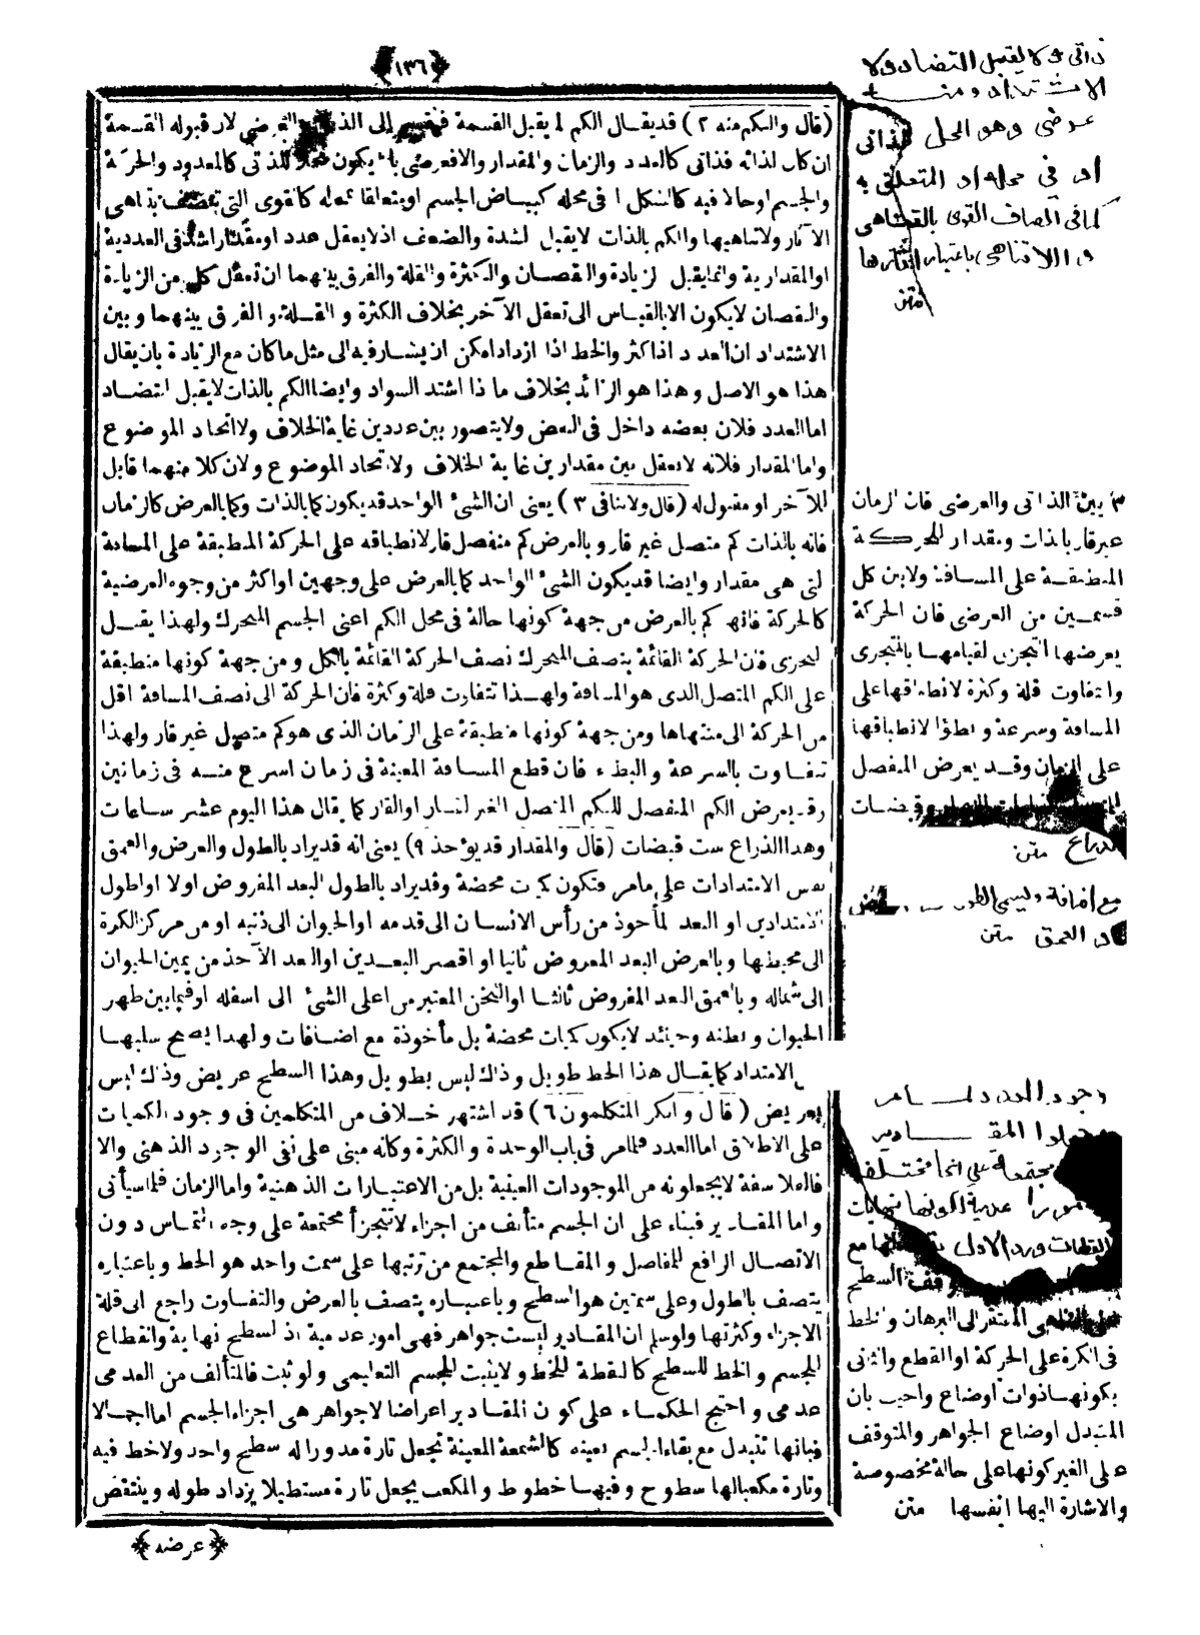 ١٣٦
(قال والكم منه ٢) قد يقال الكم لما يقبل القسمة فينقسم إلى الذاتي والعرضي لان قبوله القسمة
ان كان لذاته فذاتى كالعدد والزمان والمقدار والافعرضى بان يكون محلا للذاتى كالمعدود والحركة
والجسم اوحالا فيه كالشكل او فى محله كبياض الجسم او متعلقا بمحله كالقوى التى تتصف بتناهى
الآثار ولاتناهيها والكم بالذات لايقبل الشدة والضعف اذ لايعقل عدد او مقدار اشد فى العددية
او المقدارية وانما يقبل الزيادة والنقصان والكثرة والقلة والفرق بينهما ان تعقل كل من الزيادة
والنقصان لايكون الا بالقياس الى تعقل الآخر بخلاف الكثرة والقلة والفرق بينهما وبين
الاشتداد ان العدد اذا كثر والخط اذا ازداد امكن ان يشار فيه الى مثل ما كان مع الزيادة بان يقال
هذا هو الاصل وهذا هو الزائد بخلاف ما اذا اشتد السواد وايضا الكم بالذات لايقبل التضاد
اما العدد فلان بعضه داخل فى البعض ولايتصور بين عددين غاية الخلاف ولا اتحاد الموضوع
واما المقدار فلانه لايعقل بين مقدارين غاية الخلاف ولا اتحاد الموضوع ولان كلا منهما قابل
للآخر او مقبول له (قال ولاتنافى ٣) يعنى ان الشئ الواحد قد يكون كما بالذات وكما بالعرض كالزمان
فانه بالذات كم متصل غير قار وبالعرض كم منفصل قار لانطباقه على الحركة المنطبقة على المسافة
التى هى مقدار وايضا قد يكون الشئ الواحد كما بالعرض على وجهين او اكثر من وجوه العرضية
كالحركة فانها كم بالعرض من جهة كونها حالة فى محل الكم اعنى الجسم المتحرك ولهذا يقبل
التجزى فان الحركة القائمة بنصف المتحرك نصف الحركة القائمة بالكل ومن جهة كونها منطبقة
على الكم المتصل الذى هو المسافة ولهذا تتفاوت قلة وكثرة فان الحركة الى نصف المسافة اقل
من الحركة الى منتهاها ومن جهة كونها منطبقة على الزمان الذى هو كم متصل غير قار ولهذا
تتفاوت بالسرعة والبطء فان قطع المسافة المعينة فى زمان اسرع منه فى زمانين
وقد يعرض الكم المنفصل للكم المتصل الغير القار او القار كما يقال هذا اليوم عشر ساعات
وهذا الذراع ست قبضات (قال والمقدار قد يؤخذ ٩) يعنى انه قد يراد بالطول والعرض والعمق
نفس الامتدادات على مامر فتكون كميات محضة وقد يراد بالطول البعد المفروض اولا او اطول
الامتدادين او البعد المأخوذ من رأس الانسان الى قدمه او الحيوان الى ذنبه او من مركز الكرة
الى محيطها وبالعرض البعد المفروض ثانيا او اقصر البعدين او البعد الآخذ من يمين الحيوان
الى شماله وبالعمق البعد المفروض ثالثا او الثخن المعتبر من اعلى الشئ الى اسفله او فيما بين ظهر
الحيوان وبطنه وحينئذ لايكون كميات محضة بل مأخوذة مع اضافات ولهذا يصح سلبها
الامتداد كما يقال هذا الخط طويل وذاك ليس بطويل وهذا السطح عريض وذاك ليس
بعريض (قال وانكر المتكلمون ٦) قد اشتهر خلاف من المتكلمين فى وجود الكميات
على الاطلاق اما العدد فلمامر فى باب الوحدة والكثرة وكأنه مبنى على نفى الوجود الذهنى والا
فالفلاسفة لايجعلونه من الموجودات العينية بل من الاعتبارات الذهنية واما الزمان فلما سيأتى
واما المقادير فبناء على ان الجسم متألف من اجزاء لاتتجزأ مجتمعة على وجه التماس دون
الاتصال الرافع للمفاصل والمقاطع والمجتمع من ترتبها على سمت واحد هو الخط وباعتباره
يتصف بالطول وعلى سمتين هو السطح وباعتباره يتصف بالعرض والتفاوت راجع الى قلة
الاجزاء وكثرتها ولو سلم ان المقادير ليست جواهر فهى امور عدمية اذ السطح نهاية وانقطاع
للجسم والخط للسطح كالنقطة للخط ولايثبت للجسم التعليمى ولو ثبت فالمتألف من العدمى
عدمى واحتج الحكماء على كون المقادير اعراضا لاجواهر هى اجزاء الجسم اما اجمالا
فبانها تتبدل مع بقاء الجسم بعينه كالشمعة المعينة تجعل تارة مدورا له سطح واحد ولاخط فيه
وتارة مكعبا لها سطوح وفيها خطوط والمكعب يجعل تارة مستطيلا يزداد طوله وينتقض
عرضه
ذاتى ولايقبل التضاد ولا
الاشتداد ومنه
عرضى وهو الحال الذاتى
او فى محله او المتعلق به
كما فى اتصاف القوى بالتناهى
واللاتناهى باعتبار آثارها
متن
٣ بين الذاتى والعرضى فان الزمان
غير قار بالذات ومقدار للحركة
المنطبقة على المسافة ولابين كل
قسمين من العرضى فان الحركة
يعرضها التجزى لقيامها بالمتجزى
والتفاوت قلة وكثرة لانطباقها على
المسافة وسرعة وبطؤا لانطباقها
على الزمان وقد يعرض المنفصل
وقبضات
الذراع متن
مع اضافة ويسمى الطول
والعمق متن
وجود العدد لما مر
المقادير
مجتمعة على انحا مختلفة
امورا عدمية لكونها نهايات
ورد الاول مع
السطح
المفتقر الى البرهان والخط
فى الكرة على الحركة او القطع والثانى
بكونها ذوات اوضاع واجيب بان
المتبدل اوضاع الجواهر والمتوقف
على الغير كونها على حالة مخصوصة
والاشارة اليها انفسها متن